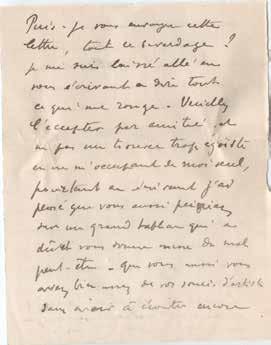 Puis-je vous envoyer cette
lettre, tout ce bavardage?
je me suis laissé aller en
vous écrivant à dire tout
ce qui me ronge. Veuillez
l'accepter par amitié et
ne pas me trouver trop égoïste
en ne m'occupant de moi seul,
pourtant en écrivant j'ai
pensé que vous aussi peiniez
sur un grand tableau qui a
dû vous donner more du mal
peut-être - que vous aussi vous
avez bien assez de vos soucis d'artiste
sans avoir à écouter encore